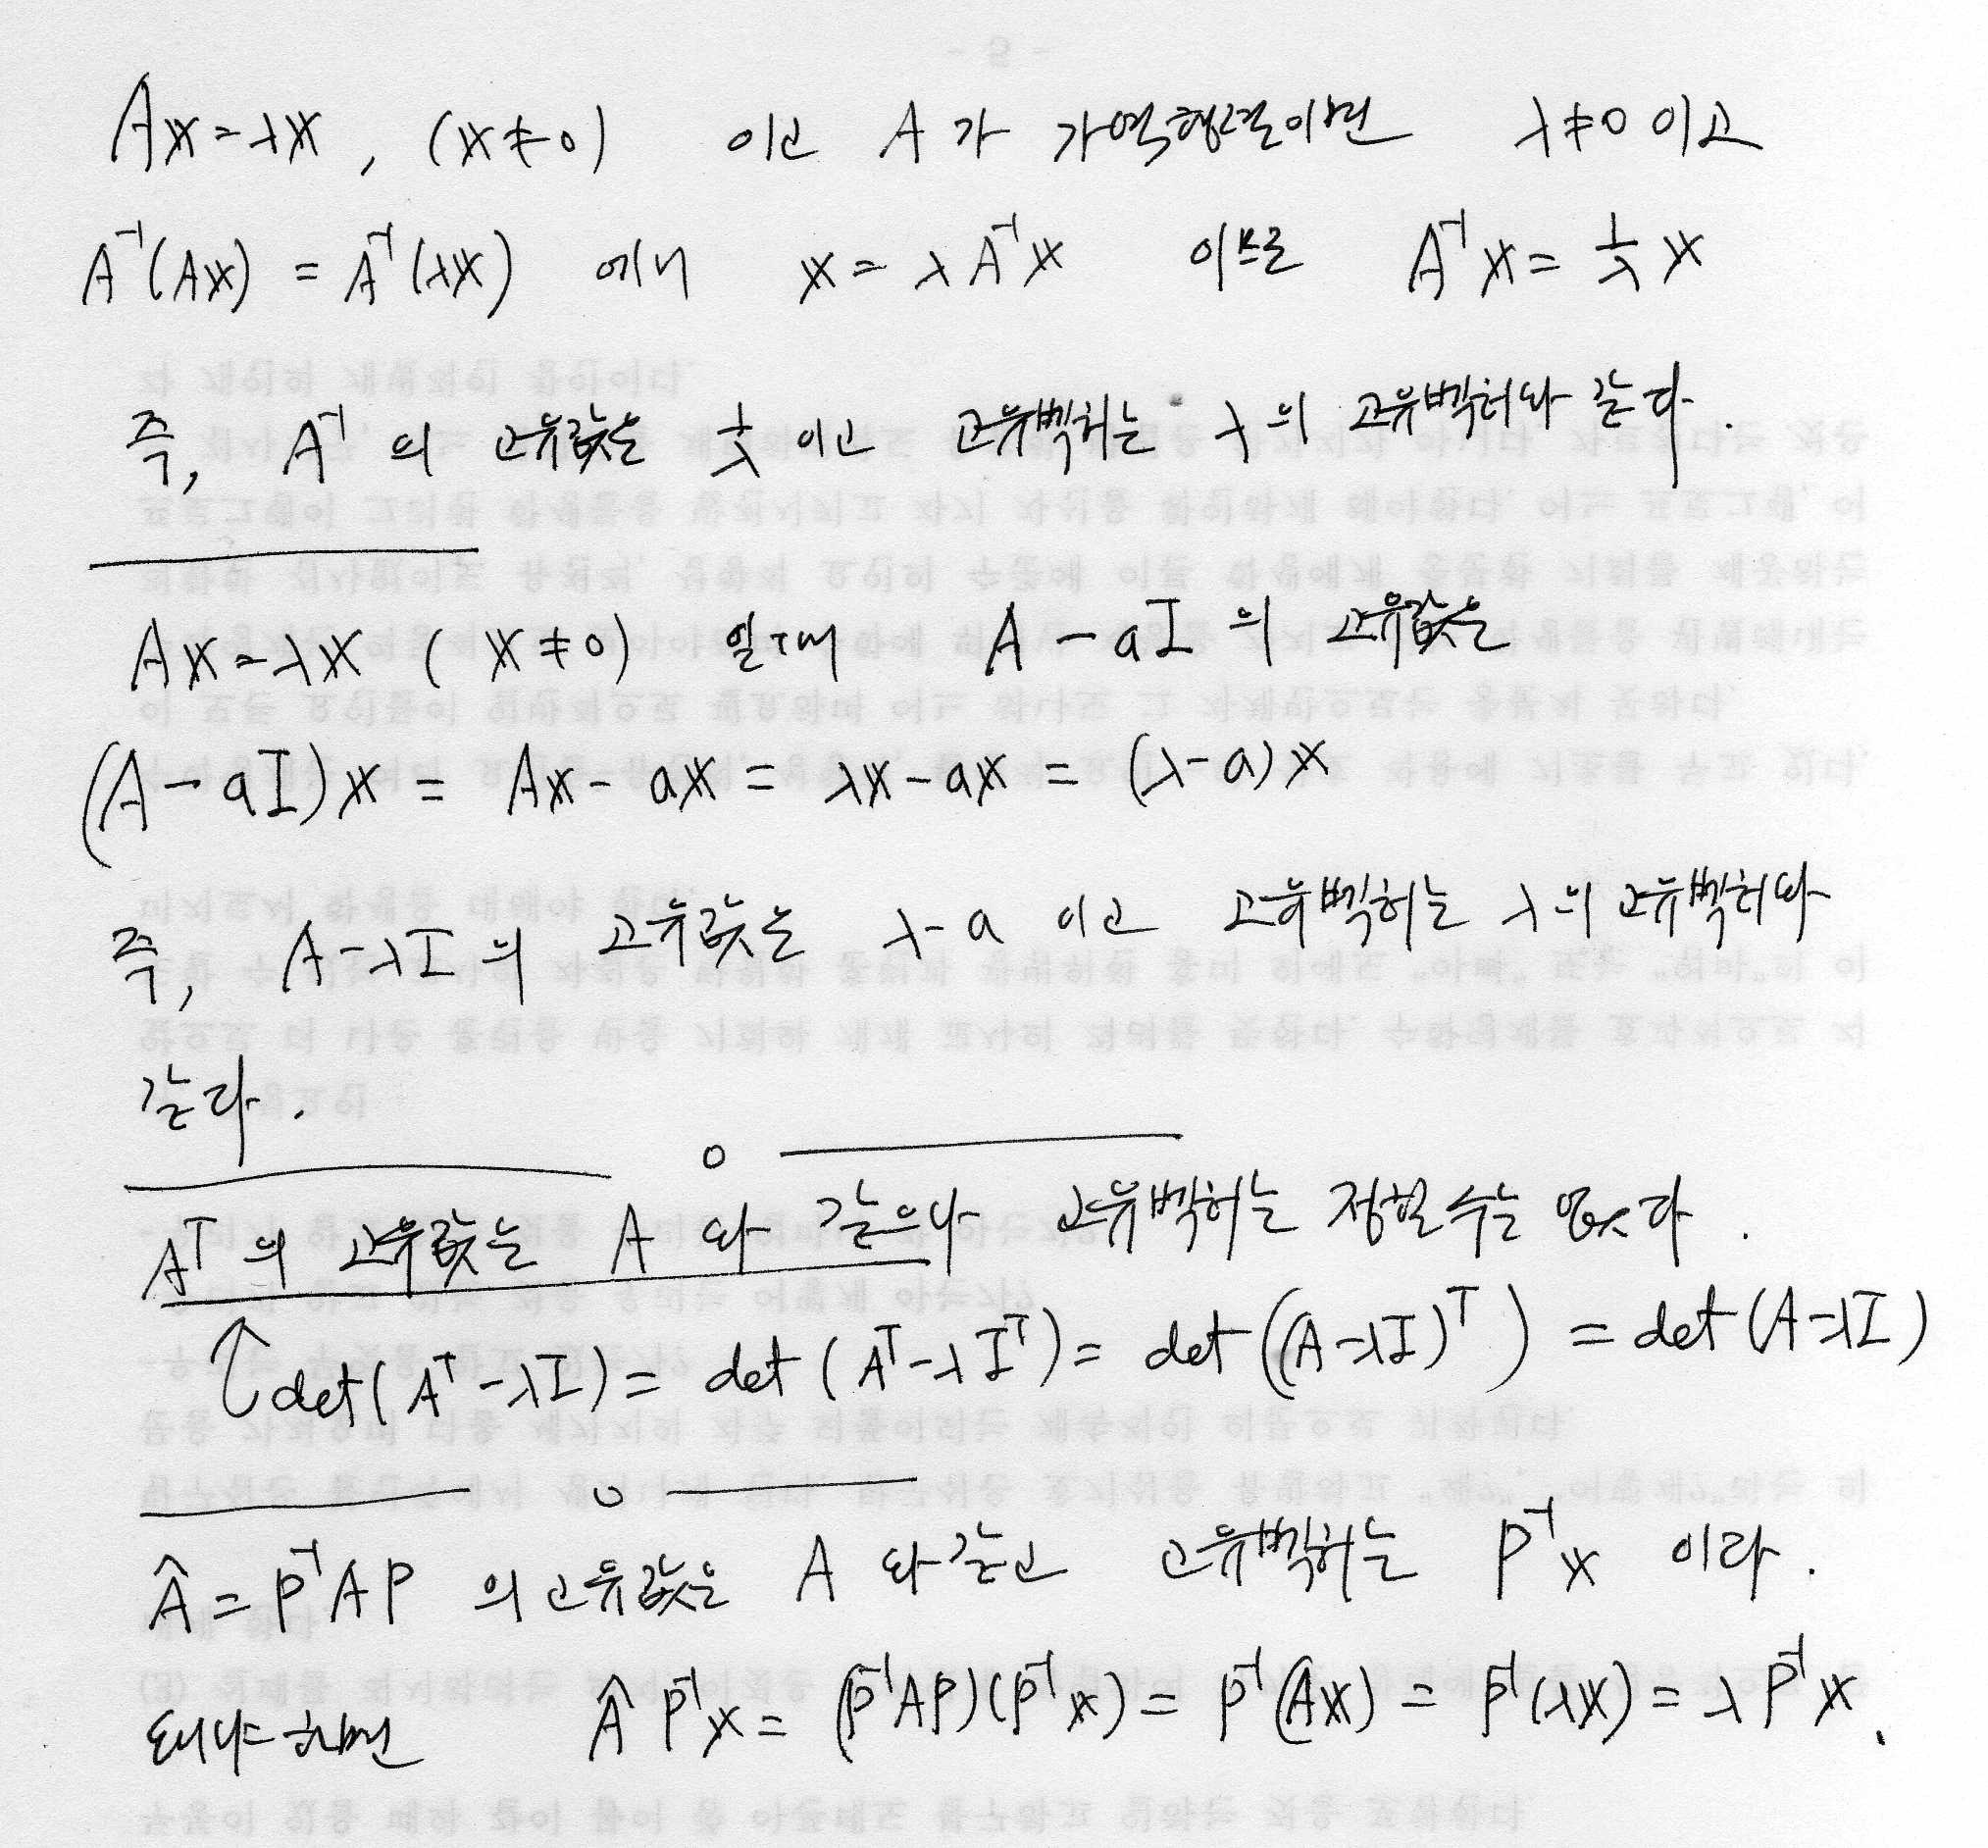 Ax=λx, (x≠0) 이고 A가 가역행렬이면 λ≠0 이고
A⁻¹(Ax) = A⁻¹(λx) 에서 x = λA⁻¹x 이므로 A⁻¹x = 1/λ x
즉, A⁻¹의 고유값은 1/λ 이고 고유벡터는 λ의 고유벡터와 같다.
Ax=λx (x≠0) 일 때 A-aI의 고유값은
(A-aI)x = Ax-ax = λx-ax = (λ-a)x
즉, A-λI의 고유값은 λ-a 이고 고유벡터는 λ의 고유벡터와
같다.
Aᵀ의 고유값은 A와 같으나 고유벡터는 정할 수는 없다.
↑ det(Aᵀ-λI) = det(Aᵀ-λIᵀ) = det((A-λI)ᵀ) = det(A-λI)
Â = P⁻¹AP 의 고유값은 A와 같고 고유벡터는 P⁻¹x 이다.
왜냐하면 ÂP⁻¹x = (P⁻¹AP)(P⁻¹x) = P⁻¹(Ax) = P⁻¹(λx) = λP⁻¹x.